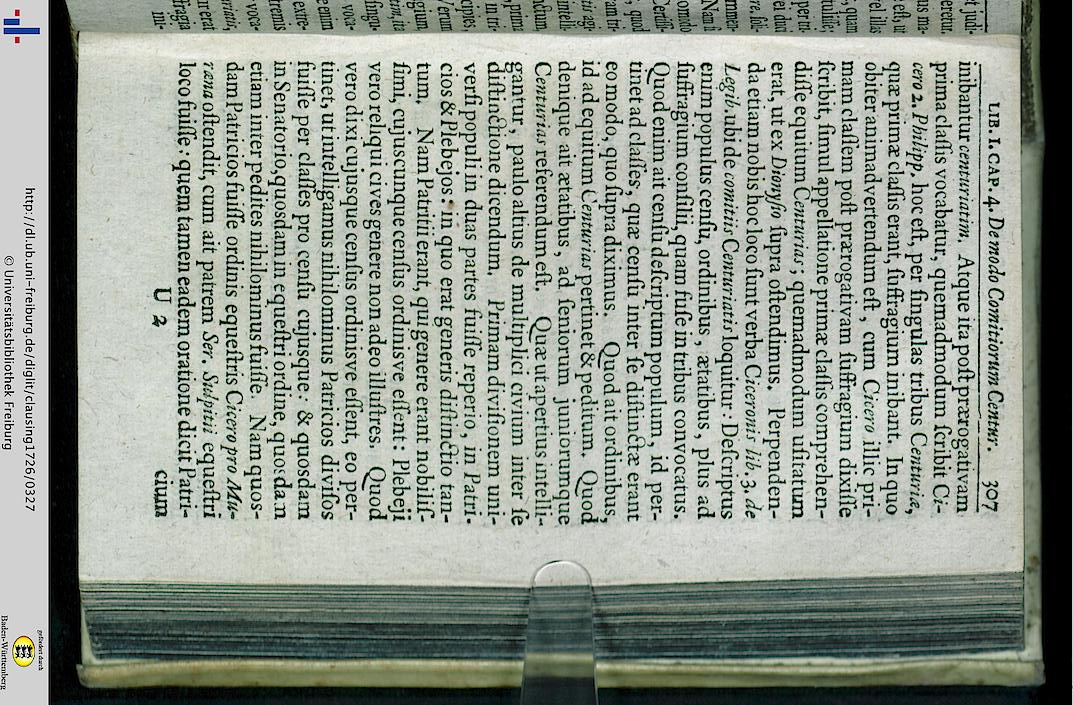 LIB. I. CAP. 4. De modo Comitiorum Centur. 307
inibantur centuriatim. Atque ita post prærogativam
prima classis vocabatur, quemadmodum scribit Ci-
cero 2. Philipp. hoc est, per singulas tribus Centuriæ,
quæ primæ classis erant, suffragium inibant. In quo
obiter animadvertendum est, cum Cicero illic pri-
mam classem post prærogativam suffragium dixisse
scribit, simul appellatione primæ classis comprehen-
disse equitum Centurias; quemadmodum usitatum
erat, ut ex Dionysio supra ostendimus. Perpenden-
da etiam nobis hoc loco sunt verba Ciceronis lib. 3. de
Legib. ubi de comitiis Centuriatis loquitur: Descriptus
enim populus censu, ordinibus, ætatibus, plus ad
suffragium consilii, quam fuse in tribus convocatus.
Quod enim ait censu descriptum populum, id per-
tinet ad classes, quæ censu inter se distinctæ erant
eo modo, quo supra diximus. Quod ait ordinibus,
id ad equitum Centurias pertinet & peditum. Quod
denique ait ætatibus, ad seniorum juniorumque
Centurias referendum est. Quæ ut apertius intelli-
gantur, paulo altius de multiplici civium inter se
distinctione dicendum. Primam divisionem uni-
versi populi in duas partes fuisse reperio, in Patri-
cios & Plebejos: in quo erat generis distinctio tan-
tum. Nam Patritii erant, qui genere erant nobilis-
simi, cujuscunque census ordinisve essent: Plebeji
vero reliqui cives genere non adeo illustres. Quod
vero dixi cujusque census ordinisve essent, eo per-
tinet, ut intelligamus nihilominus Patricios divisos
fuisse per classes pro censu cujusque: & quosdam
in Senatorio, quosdam in equestri ordine, quosdam
etiam inter pedites nihilominus fuisse. Nam quos-
dam Patricios fuisse ordinis equestris Cicero pro Mu-
ræna ostendit, cum ait patrem Ser. Sulpitii equestri
loco fuisse: quem tamen eadem oratione dicit Patri-
U 2 cium
http://dl.ub.uni-freiburg.de/diglit/clausing1726/0327
© Universitätsbibliothek Freiburg
gefördert durch
Baden-Württemberg